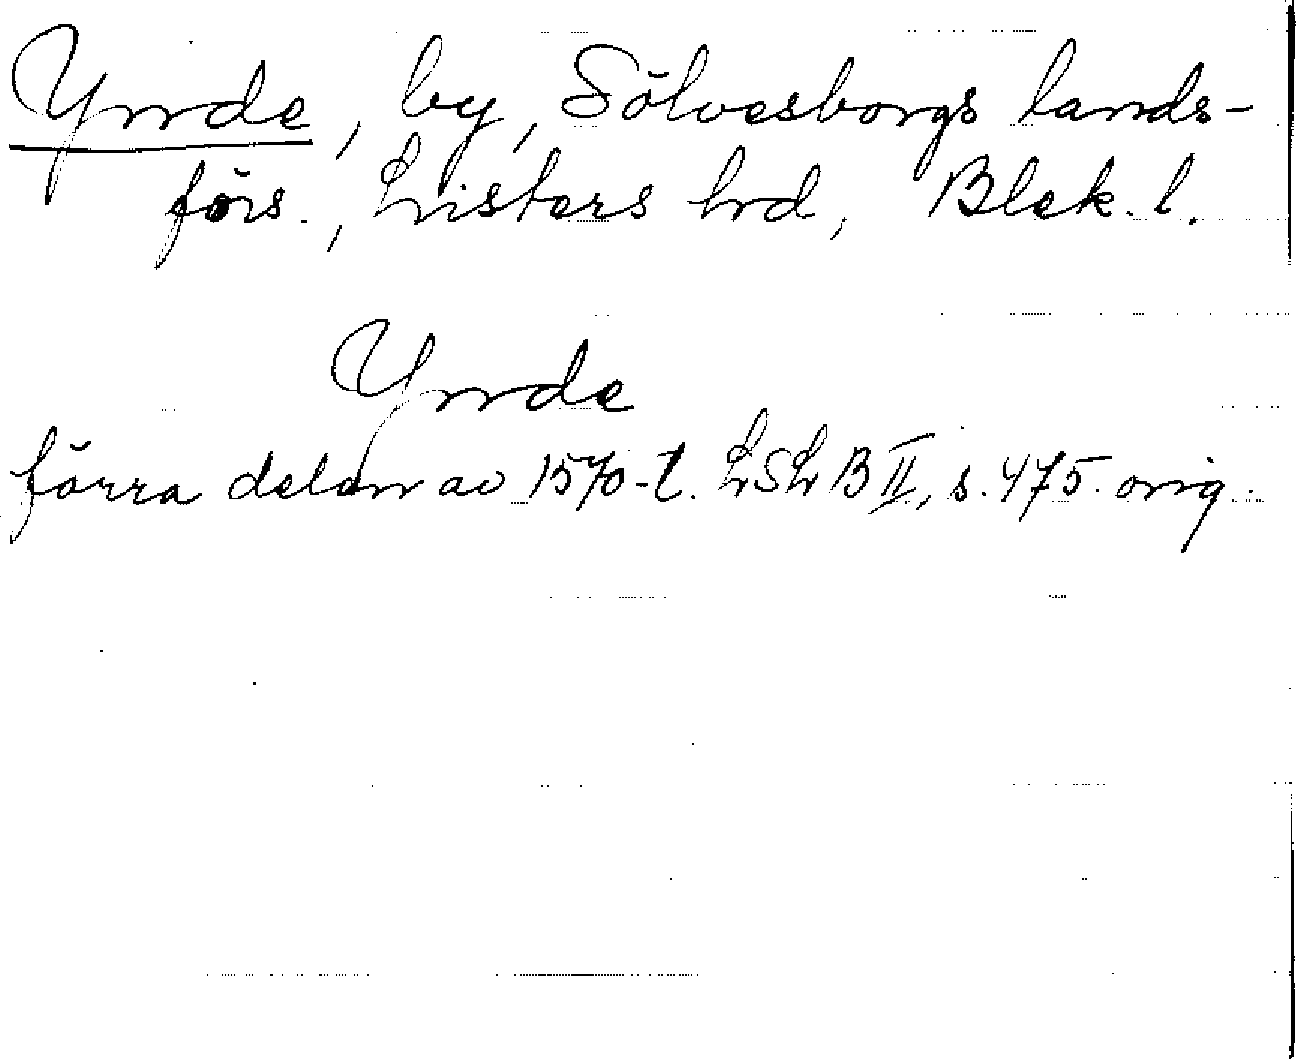 Ynde, by, Sölvesborgs lands-
förs., Listers hrd, Blek. l.
Ynde
förra delen av 1570-t. LSLB II, s. 475. orig.